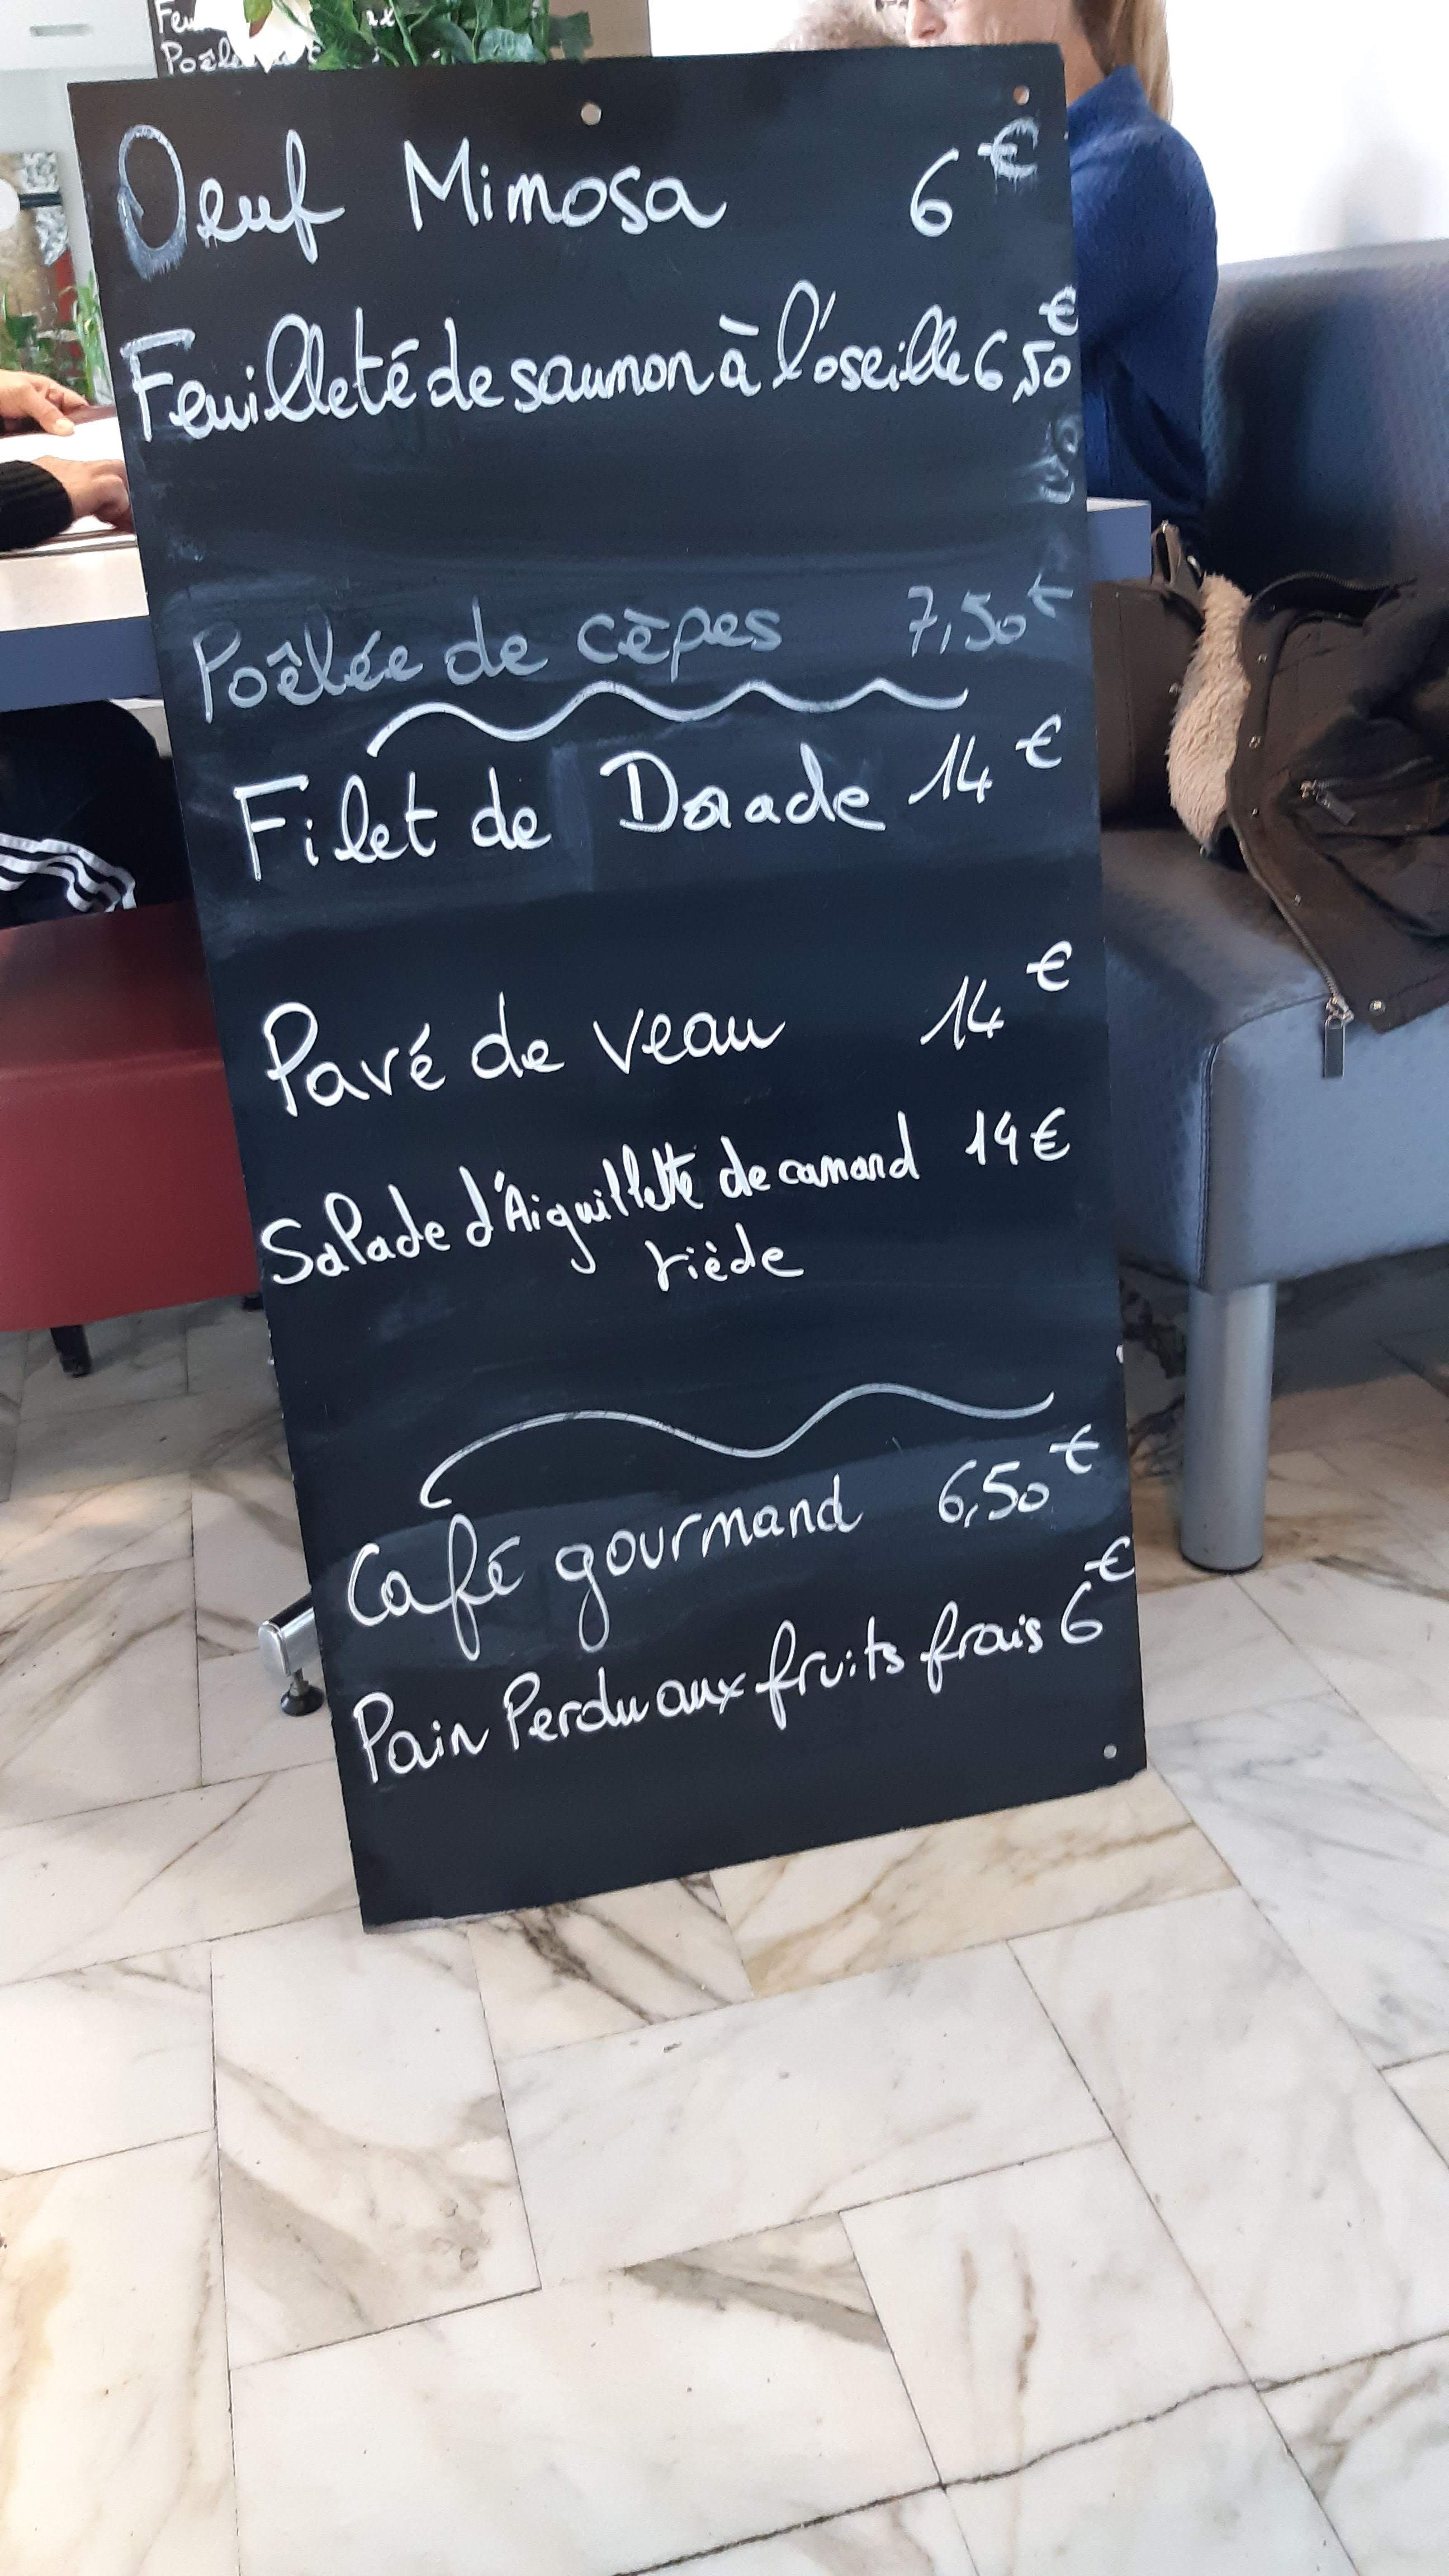 Feu
Poêl
Oeuf Mimosa 6€
Feuilleté de saumon à l'oseille 6,50€
Poêlée de cèpes 7,50€
Filet de Dorade 14€
Pavé de veau 14€
Salade d'Aiguillette de canard 14€
tiède
Café gourmand 6,50€
Pain Perdu aux fruits frais 6€